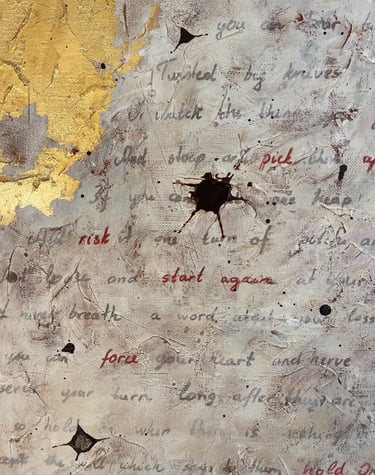 you can
Twisted by knaves
Or watch the things
And stoop and pick
If you can one heap
risk it one turn of
and start again at your
breath a word about your loss
you can force your heart and nerve
your turn long after they are
so hold on when there is nothing
the will which says to them hold on